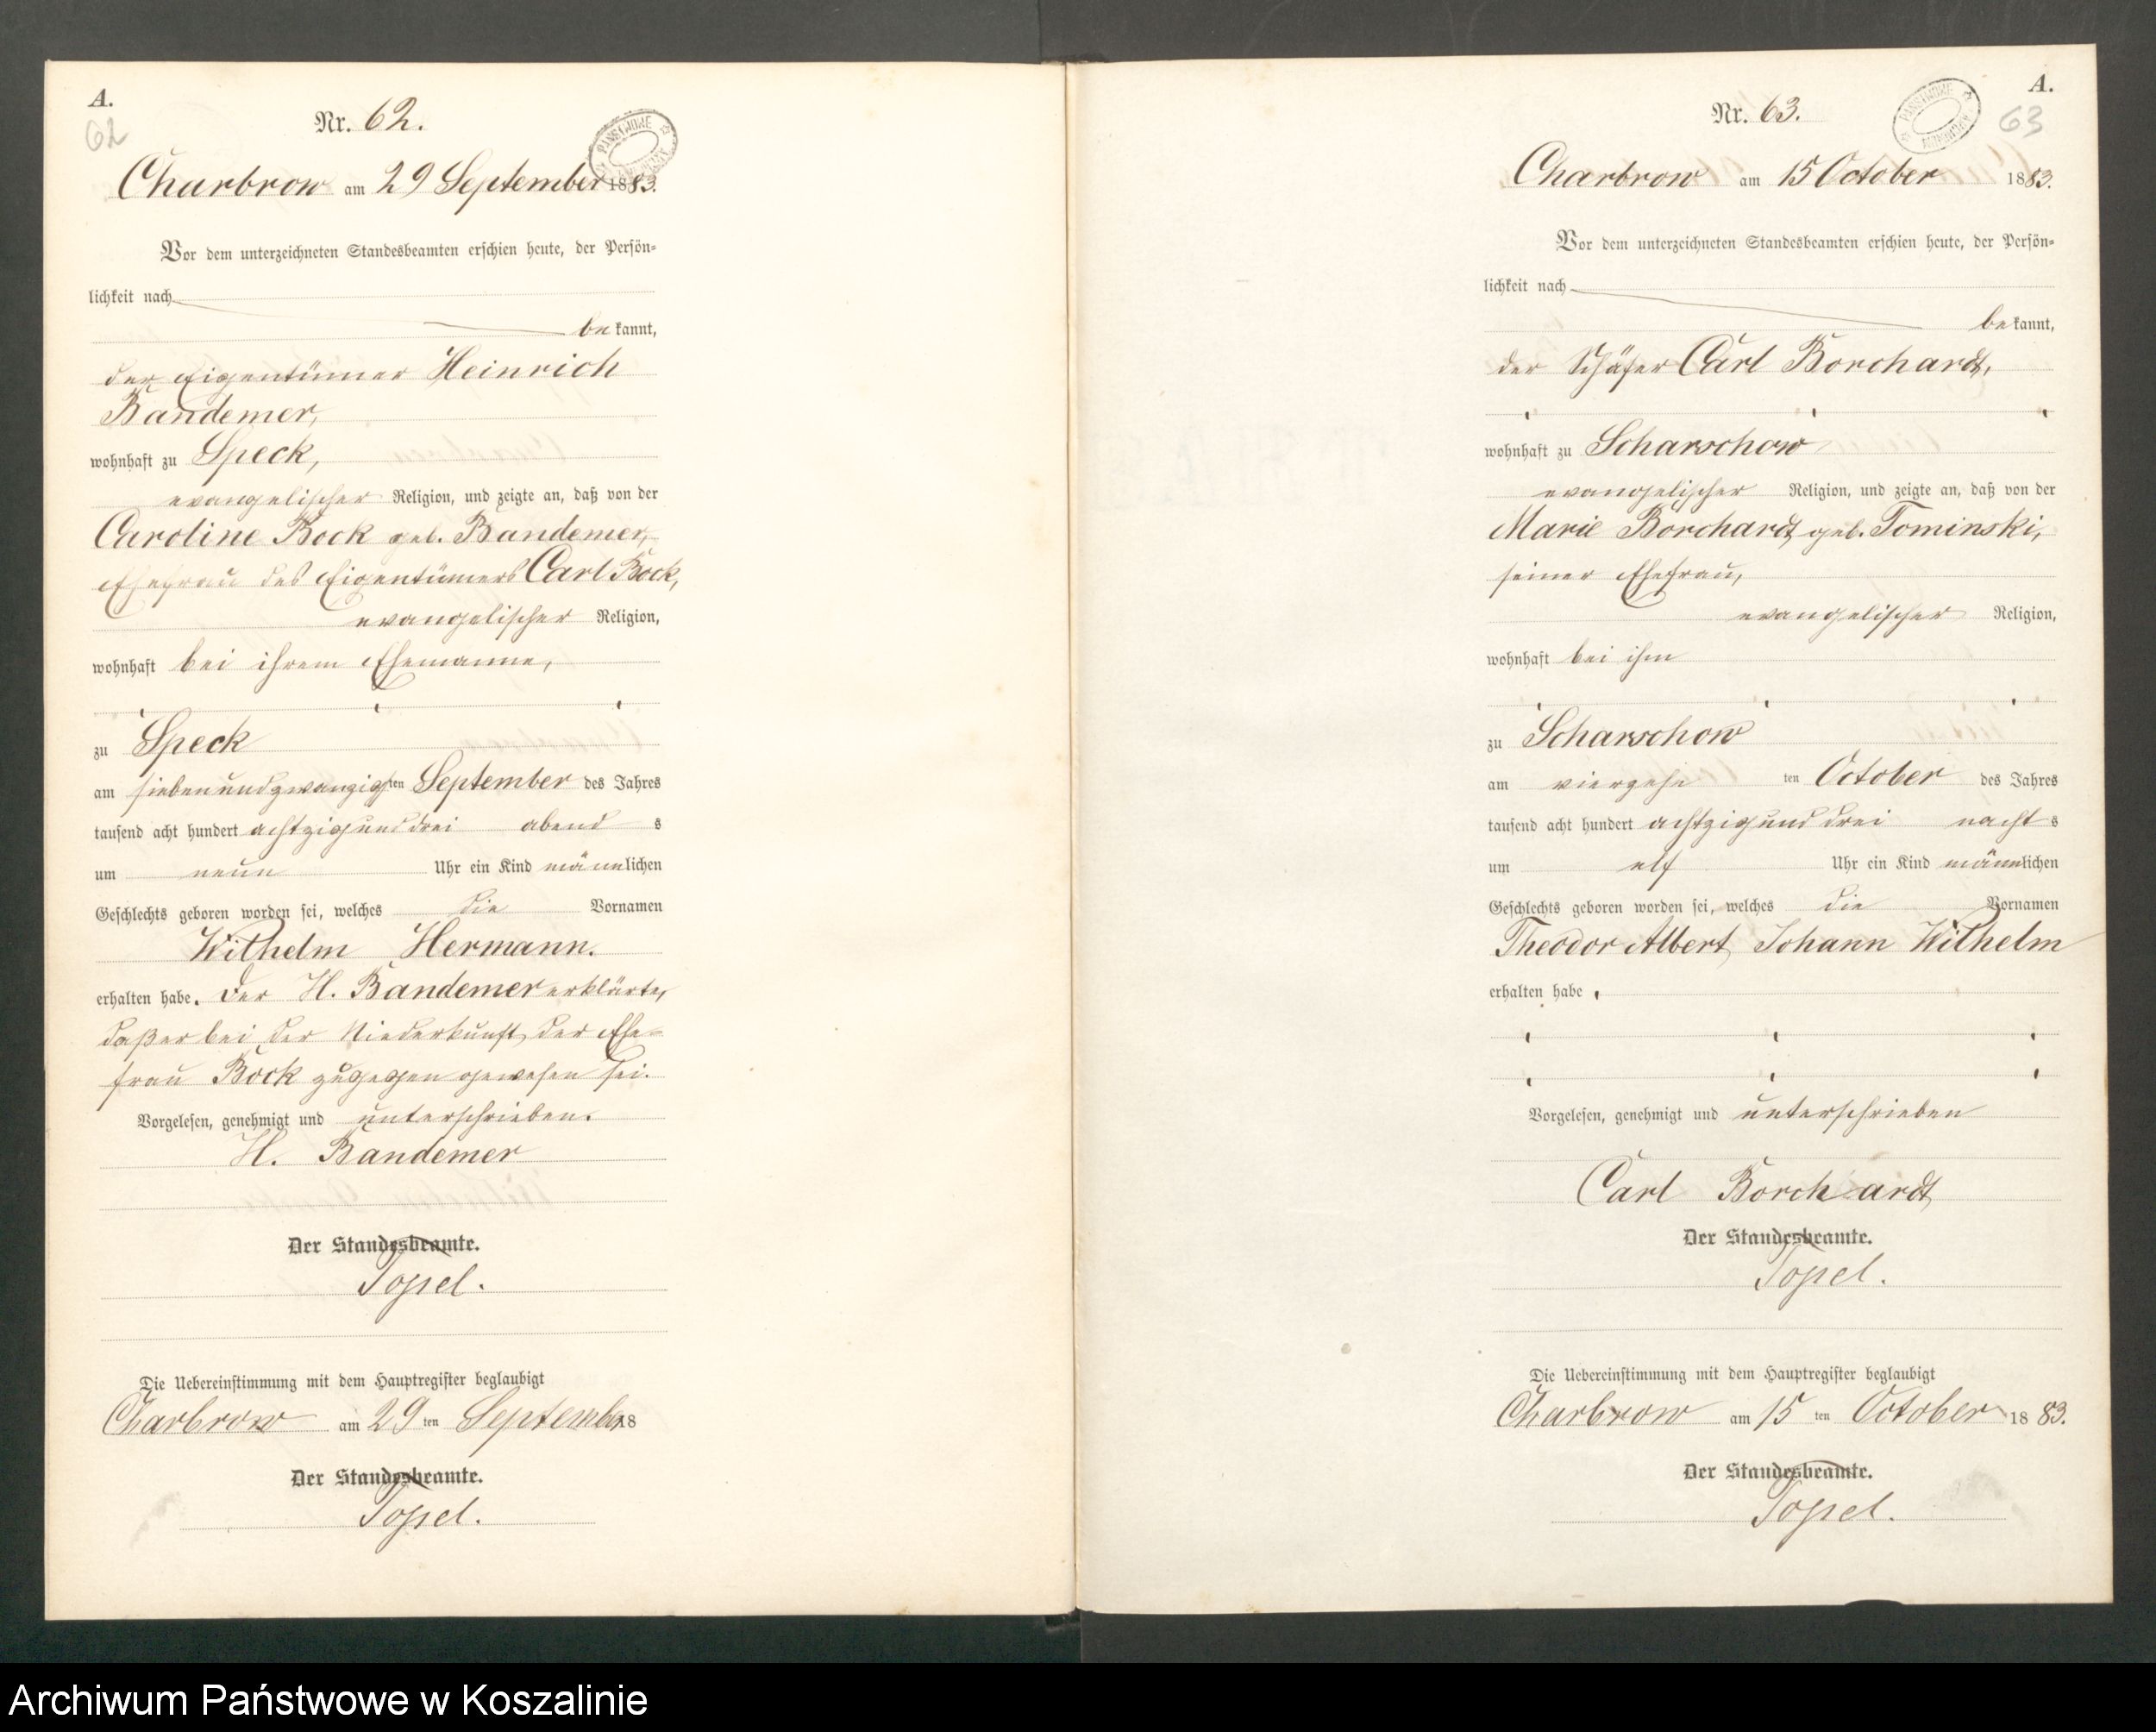 A.
62
Nr. 62.
PAŃSTWOWE
Charbrow am 29 September 1883.
Vor dem unterzeichneten Standesbeamten erschien heute, der Persön-
lichkeit nach
be kannt,
der Eigentümer Heinrich
Bandemer,
wohnhaft zu Speck,
evangelischer Religion, und zeigte an, daß von der
Caroline Bock geb. Bandemer,
Ehefrau des Eigentümers Carl Bock,
evangelischer Religion,
wohnhaft bei ihrem Ehemanne,
zu Speck
am siebenundzwanzigsten September des Jahres
tausend acht hundert achtzigunddrei abend s
um neun Uhr ein Kind männlichen
Geschlechts geboren worden sei, welches die Vornamen
Wilhelm Hermann.
erhalten habe. Der H. Bandemer erklärte,
daß er bei der Niederkunft der Ehe-
frau Bock zugegen gewesen sei.
Vorgelesen, genehmigt und unterschrieben.
H. Bandemer
Der Standesbeamte.
Topel.
Die Uebereinstimmung mit dem Hauptregister beglaubigt
Charbrow am 29 ten September 18
Der Standesbeamte.
Topel.
A.
63
Nr. 63.
PAŃSTWOWE
Charbrow am 15 October 1883.
Vor dem unterzeichneten Standesbeamten erschien heute, der Persön-
lichkeit nach
be kannt,
der Schäfer Carl Borchardt,
wohnhaft zu Scharschow
evangelischer Religion, und zeigte an, daß von der
Marie Borchardt geb. Tominski,
seiner Ehefrau,
evangelischer Religion,
wohnhaft bei ihm
zu Scharschow
am vierzehn ten October des Jahres
tausend acht hundert achtzigund drei nacht s
um elf Uhr ein Kind männlichen
Geschlechts geboren worden sei, welches die Vornamen
Theodor Albert Johann Wilhelm
erhalten habe
Vorgelesen, genehmigt und unterschrieben
Carl Borchardt
Der Standesbeamte.
Topel.
Die Uebereinstimmung mit dem Hauptregister beglaubigt
Charbrow am 15 ten October 18 83.
Der Standesbeamte.
Topel.
Archiwum Państwowe w Koszalinie